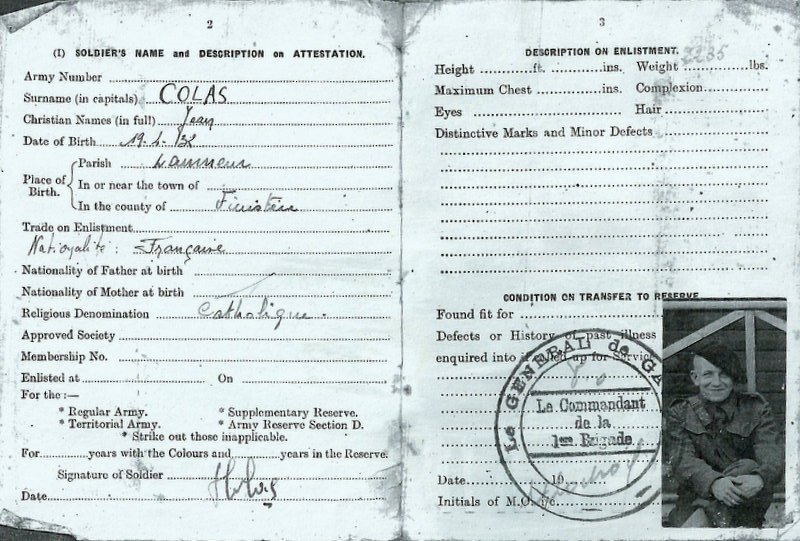 2
(I) SOLDIER'S NAME and DESCRIPTION on ATTESTATION.
Army Number
Surname (in capitals) COLAS
Christian Names (in full) Jean
Date of Birth 19.4.
Place of Birth.
Parish Lanmeur
In or near the town of
In the county of Finistère
Trade on Enlistment
Nationalité : Française
Nationality of Father at birth
Nationality of Mother at birth
Religious Denomination Catholique.
Approved Society
Membership No.
Enlisted at On
For the :—
* Regular Army. * Supplementary Reserve.
* Territorial Army. * Army Reserve Section D.
* Strike out those inapplicable.
For years with the Colours and years in the Reserve.
Signature of Soldier
Date
3
DESCRIPTION ON ENLISTMENT.
2235
Height ft. ins. Weight lbs.
Maximum Chest ins. Complexion
Eyes Hair
Distinctive Marks and Minor Defects
CONDITION ON TRANSFER TO RESERVE
Found fit for
Defects or History of past illness
enquired into if called up for Service
Le GENERAL de GA
Le Commandant
de la
1ère Brigade
Date 19
Initials of M.O. i/c